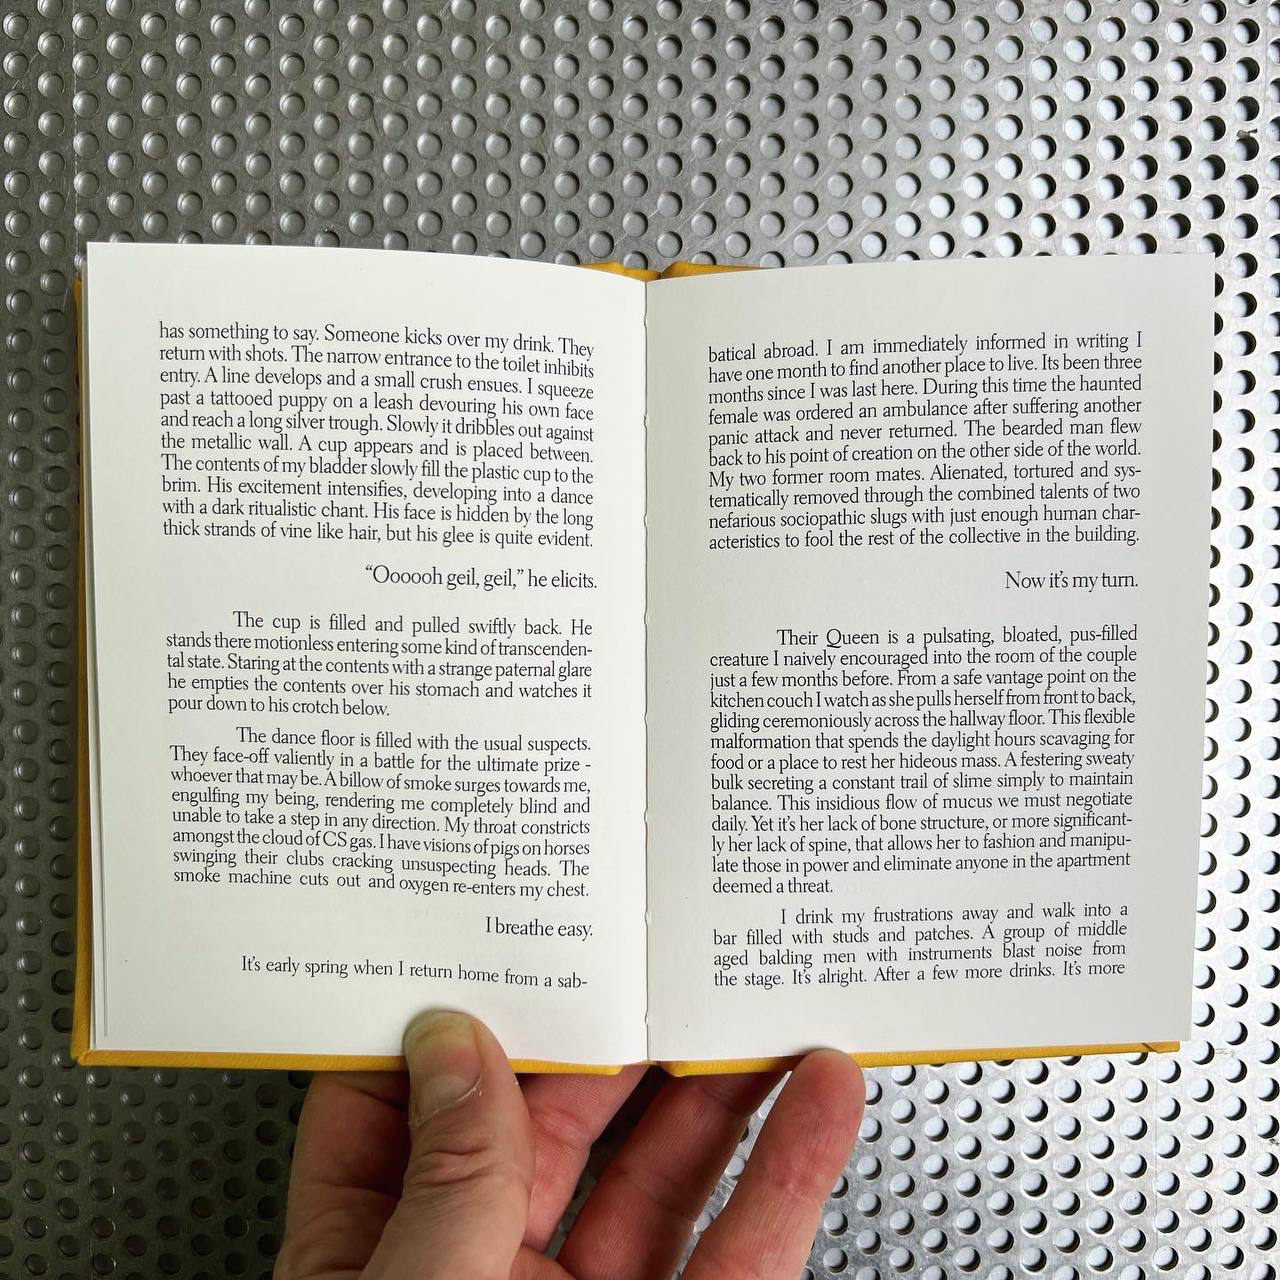 has something to say. Someone kicks over my drink. They
return with shots. The narrow entrance to the toilet inhibits
entry. A line develops and a small crush ensues. I squeeze
past a tattooed puppy on a leash devouring his own face
and reach a long silver trough. Slowly it dribbles out against
the metallic wall. A cup appears and is placed between.
The contents of my bladder slowly fill the plastic cup to the
brim. His excitement intensifies, developing into a dance
with a dark ritualistic chant. His face is hidden by the long
thick strands of vine like hair, but his glee is quite evident.
“Oooooh geil, geil,” he elicits.
The cup is filled and pulled swiftly back. He
stands there motionless entering some kind of transcenden-
tal state. Staring at the contents with a strange paternal glare
he empties the contents over his stomach and watches it
pour down to his crotch below.
The dance floor is filled with the usual suspects.
They face-off valiently in a battle for the ultimate prize -
whoever that may be. A billow of smoke surges towards me,
engulfing my being, rendering me completely blind and
unable to take a step in any direction. My throat constricts
amongst the cloud of CS gas. I have visions of pigs on horses
swinging their clubs cracking unsuspecting heads. The
smoke machine cuts out and oxygen re-enters my chest.
I breathe easy.
It’s early spring when I return home from a sab-
batical abroad. I am immediately informed in writing I
have one month to find another place to live. Its been three
months since I was last here. During this time the haunted
female was ordered an ambulance after suffering another
panic attack and never returned. The bearded man flew
back to his point of creation on the other side of the world.
My two former room mates. Alienated, tortured and sys-
tematically removed through the combined talents of two
nefarious sociopathic slugs with just enough human char-
acteristics to fool the rest of the collective in the building.
Now it’s my turn.
Their Queen is a pulsating, bloated, pus-filled
creature I naively encouraged into the room of the couple
just a few months before. From a safe vantage point on the
kitchen couch I watch as she pulls herself from front to back,
gliding ceremoniously across the hallway floor. This flexible
malformation that spends the daylight hours scavaging for
food or a place to rest her hideous mass. A festering sweaty
bulk secreting a constant trail of slime simply to maintain
balance. This insidious flow of mucus we must negotiate
daily. Yet it’s her lack of bone structure, or more significant-
ly her lack of spine, that allows her to fashion and manipu-
late those in power and eliminate anyone in the apartment
deemed a threat.
I drink my frustrations away and walk into a
bar filled with studs and patches. A group of middle
aged balding men with instruments blast noise from
the stage. It’s alright. After a few more drinks. It’s more